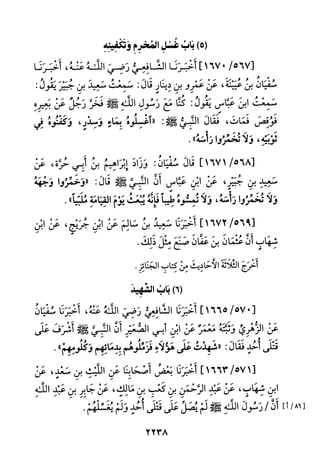 (٥) بَابُ غُسْلِ المُحْرِمِ وَتَكْفِينِهِ
[١٦٧٠/٥٦٧] أَخْبَرَنَا الشَّافِعِيُّ رَضِيَ اللَّهُ عَنْهُ، أَخْبَرَنَا
سُفْيَانُ بنُ عُيَيْنَةَ، عَنْ عَمْرِو بنِ دِينَارٍ قَالَ: سَمِعْتُ سَعِيدَ بنَ جُبَيْرٍ يَقُولُ:
سَمِعْتُ ابنَ عَبَّاسٍ يَقُولُ: كُنَّا مَعَ رَسُولِ اللَّهِ ﷺ فَخَرَّ رَجُلٌ عَنْ بَعِيرِهِ
فَوُقِصَ فَمَاتَ، فَقَالَ النَّبِيُّ ﷺ: «اغْسِلُوهُ بِمَاءٍ وَسِدْرٍ، وَكَفِّنُوهُ فِي
ثَوْبَيْهِ، وَلَا تُخَمِّرُوا رَأْسَهُ».
[١٦٧١/٥٦٨] قَالَ سُفْيَانُ: وَزَادَ إِبْرَاهِيمُ بنُ أَبِي حُرَّةَ، عَنْ
سَعِيدِ بنِ جُبَيْرٍ، عَنْ ابْنِ عَبَّاسٍ أَنَّ النَّبِيَّ ﷺ قَالَ: «وَخَمِّرُوا وَجْهَهُ
وَلَا تُخَمِّرُوا رَأْسَهُ، وَلَا تُمِسُّوهُ طِيباً فَإِنَّهُ يُبْعَثُ يَوْمَ القِيَامَةِ مُلَبِّياً».
[١٦٧٢/٥٦٩] أَخْبَرَنَا سَعِيدُ بنُ سَالِمَ عَنْ ابْنِ جُرَيْجٍ، عَنْ ابْنِ
شِهَابٍ أَنَّ عُثْمَانَ بنَ عَفَّانَ صَنَعَ مِثْلَ ذَلِكَ.
أَخْرَجَ الثَّلَاثَةَ الأَحَادِيثَ مِنْ كِتَابِ الجَنَائِزِ.
(٦) بَابُ الشَّهِيدِ
[١٦٦٥/٥٧٠] أَخْبَرَنَا الشَّافِعِيُّ رَضِيَ اللَّهُ عَنْهُ، أَخْبَرَنَا سُفْيَانُ
عَنْ الزُّهْرِيِّ وَثَبَّتَهُ مَعْمَرٌ عَنْ ابْنِ أَبِي الصُّعَيْرِ أَنَّ النَّبِيَّ ﷺ أَشْرَفَ عَلَى
قَتْلَى أُحُدٍ فَقَالَ: «شَهِدْتُ عَلَى هَؤُلَاءِ فَزَمِّلُوهُم بِدِمَائِهِم وَكُلُومِهِمْ».
[١٦٦٣/٥٧١] أَخْبَرَنَا بَعْضُ أَصْحَابِنَا عَنِ اللَّيْثِ بنِ سَعْدٍ، عَنْ
ابنِ شِهَابٍ، عَنْ عَبْدِ الرَّحْمَنِ بنِ كَعْبِ بنِ مَالِكٍ، عَنْ جَابِرِ بنِ عَبْدِ اللَّهِ
أَنَّ/ رَسُولَ اللَّهِ ﷺ لَمْ يُصَلِّ عَلَى قَتْلَى أُحُدٍ وَلَمْ يُغَسِّلْهُمْ. [٨٦/أ]
٢٢٣٨